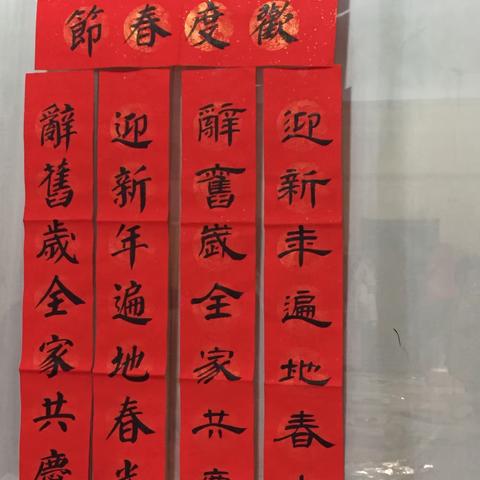 歡度春節
迎新年遍地春
辭舊歲全家共慶
迎新年遍地春光
辭舊歲全家共慶